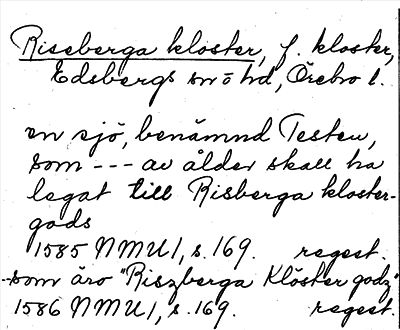 Riseberga kloster, f. kloster,
Edsbergs sn o hd, Örebro l.
en sjö, benämnd Testen,
som --- av ålder skall ha
legat till Risberga kloster-
gods
1585 NMU 1, s. 169. regest.
-som äro "Riszberga Klöster godz"
1586 NMU 1, s. 169. regest.